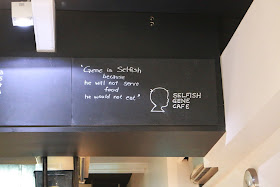 "Gene is Selfish
because
he will not serve
food
he would not eat"
SELFISH
GENE
CAFE